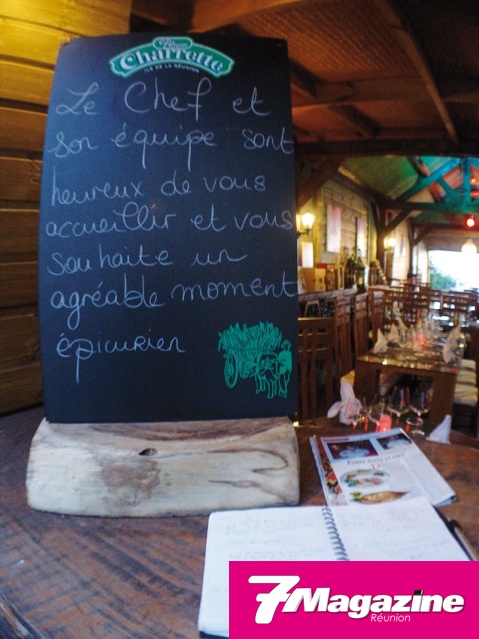 Rhum
Charrette
ILE DE LA RÉUNION
Le Chef et
son équipe sont
heureux de vous
accueillir et vous
souhaite un
agréable moment
épicurien
7Magazine
Réunion